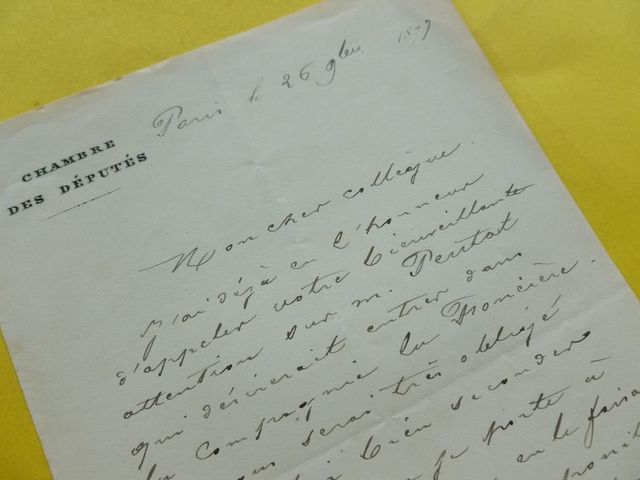 CHAMBRE
DES DÉPUTÉS
Paris le 26 9bre
Mon cher collègue.
J'ai déjà eu l'honneur
d'appeler votre bienveillante
attention sur M. Pertat
qui désirerait entrer dans
la Compagnie la Foncière.
vous serai très obligé
bien seconder
je porte à
en le faisa